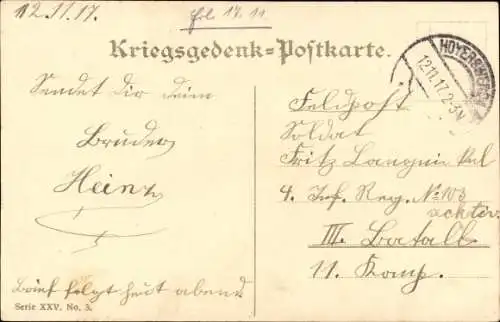 12.11.17.
17.11.
Kriegsgedenk=Postkarte.
HOYERSWERDA
12.11.17.2-3N
Sendet dir dein
Bruder
Heinz
Brief folgt heut abend
Serie XXV. No. 3.
Feldpost
Soldat
Fritz
4. Inf. Reg. No 103
III. Batall.
11. Komp.